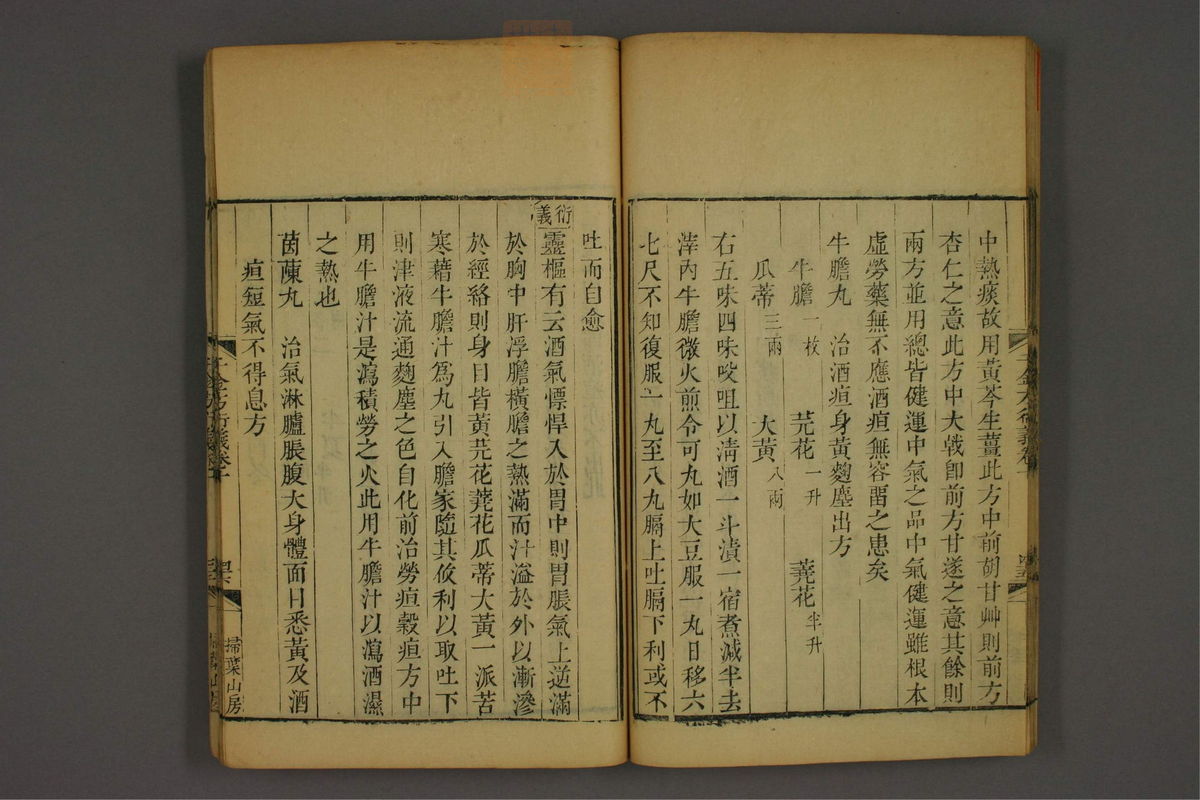 中熱痰故用黃芩生薑此方中前胡甘艸則前方
杏仁之意此方中大戟卽前方甘遂之意其餘則
兩方並用總皆健運中氣之品中氣健運雖根本
虛勞藥無不應酒疸無容畱之患矣
牛膽丸　治酒疸身黃麴塵出方
牛膽一枚　芫花一升　蕘花半升
瓜蒂三兩　大黃八兩
右五味四味㕮咀以淸酒一斗漬一宿煮減半去
滓內牛膽微火煎令可丸如大豆服一丸日移六
七尺不知復服一丸至八丸膈上吐膈下利或不
吐而自愈
衍義靈樞有云酒氣慓悍入於胃中則胃脹氣上逆滿
於胸中肝浮膽橫膽之熱滿而汁溢於外以漸滲
於經絡則身目皆黃芫花蕘花瓜蒂大黃一派苦
寒藉牛膽汁爲丸引入膽家隨其攸利以取吐下
則津液流通麴塵之色自化前治勞疸穀疸方中
用牛膽汁是瀉積勞之火此用牛膽汁以瀉酒濕
之熱也
茵蔯丸　治氣淋臚脹腹大身體面目悉黃及酒
疸短氣不得息方
掃葉山房